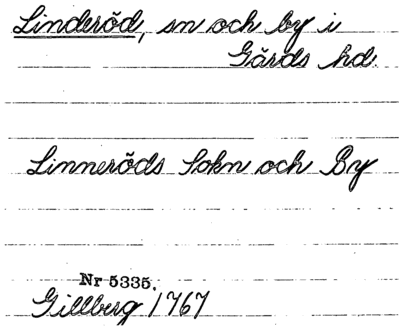 Linderöd, sn och by i
Gärds hd.
Linneröds Sokn och By
Nr 5335.
Gillberg 1767